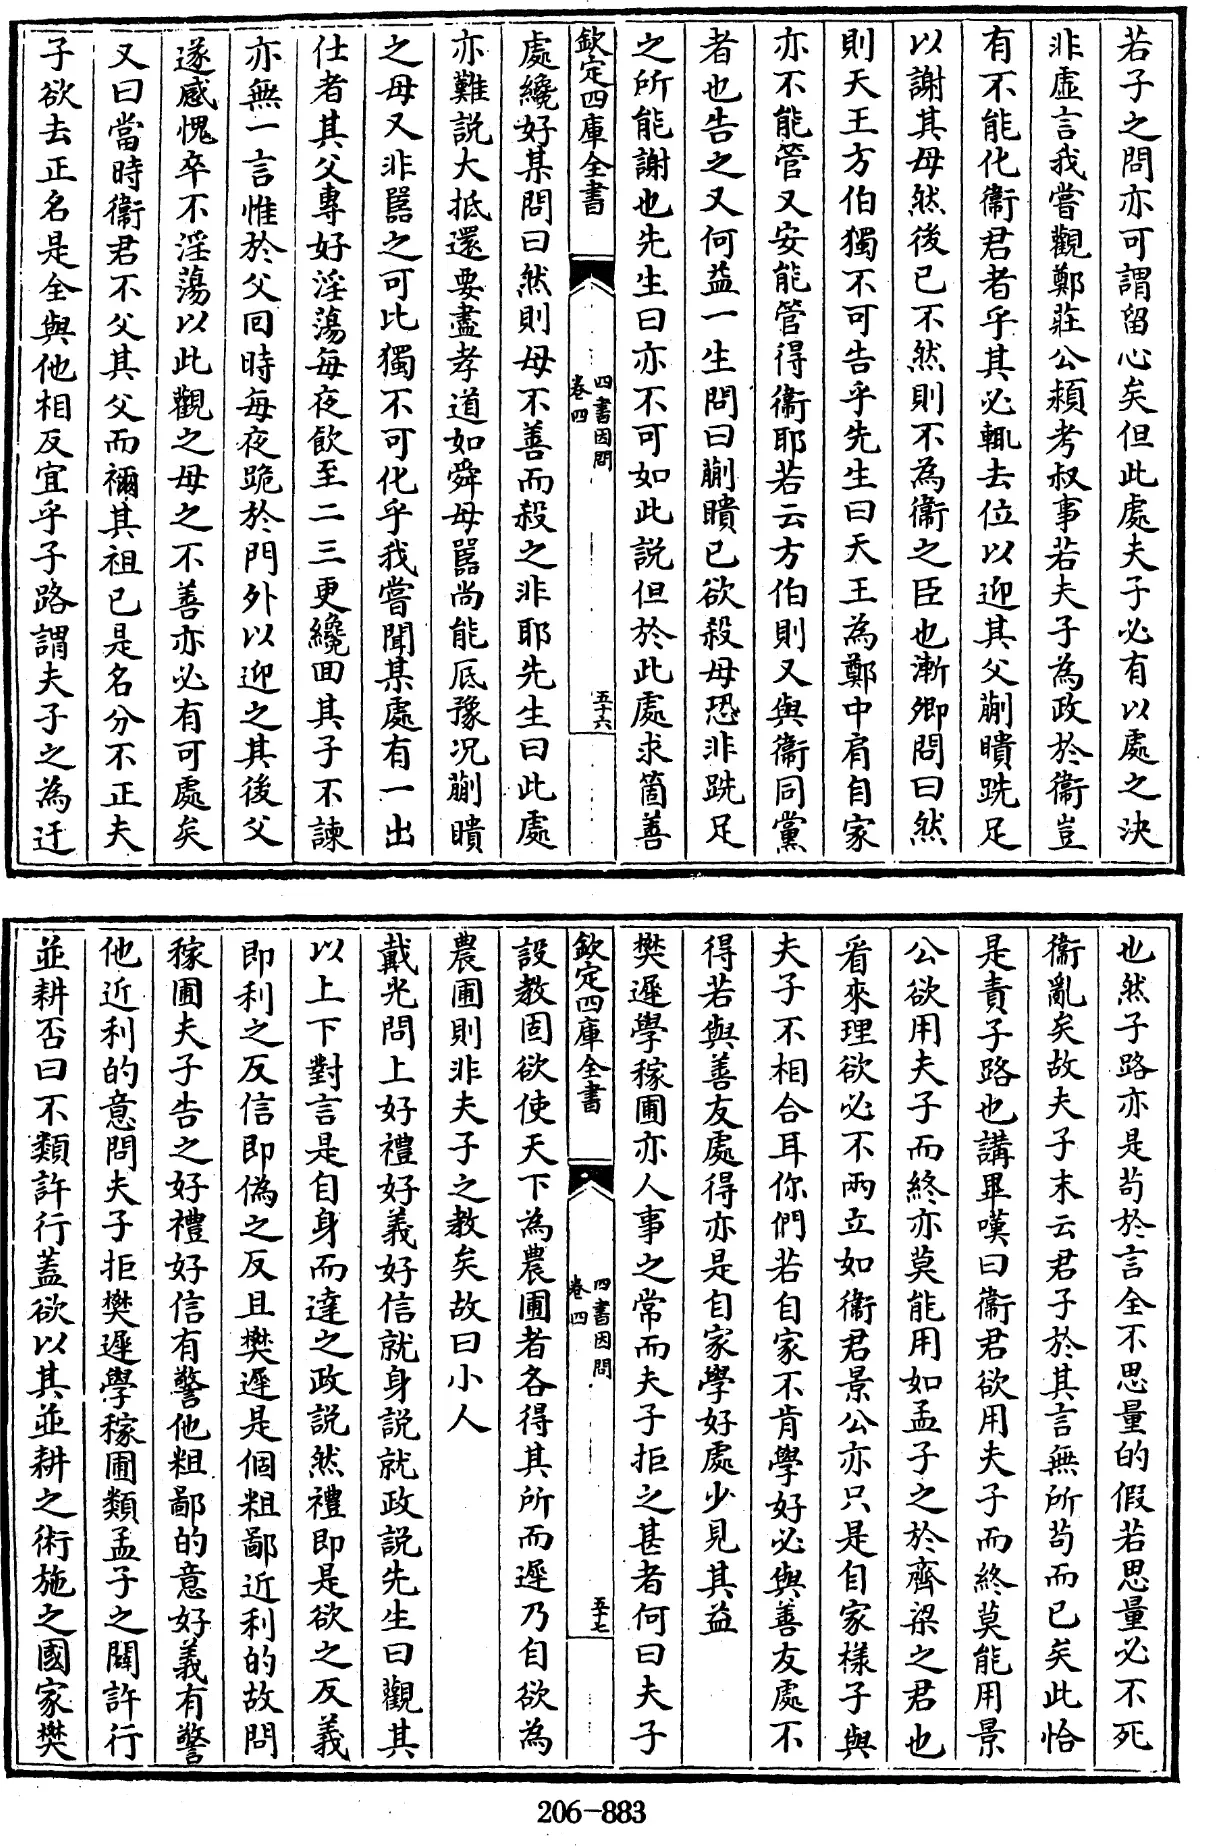 若子之問亦可謂留心矣但此處夫子必有以處之決
非虛言我嘗觀鄭莊公頴考叔事若夫子為政於衞豈
有不能化衞君者乎其必輒去位以迎其父蒯聵跣足
以謝其母然後已不然則不為衞之臣也漸卿問曰然
則天王方伯獨不可告乎先生曰天王為鄭中肩自家
亦不能管又安能管得衞耶若云方伯則又與衞同黨
者也告之又何益一生問曰蒯聵已欲殺母恐非跣足
之所能謝也先生曰亦不可如此説但於此處求箇善
欽定四庫全書
四書因問
卷四
五十六
處纔好某問曰然則母不善而殺之非耶先生曰此處
亦難説大抵還要盡孝道如舜母嚚尚能厎豫况蒯聵
之母又非嚚之可比獨不可化乎我嘗聞某處有一出
仕者其父專好淫蕩每夜飲至二三更纔回其子不諫
亦無一言惟於父囘時每夜跪於門外以迎之其後父
遂感愧卒不淫蕩以此觀之母之不善亦必有可處矣
又曰當時衞君不父其父而禰其祖已是名分不正夫
子欲去正名是全與他相反宜乎子路謂夫子之為迂
也然子路亦是茍於言全不思量的假若思量必不死
衞亂矣故夫子末云君子於其言無所茍而已矣此恰
是責子路也講畢嘆曰衞君欲用夫子而終莫能用景
公欲用夫子而終亦莫能用如孟子之於齊梁之君也
看來理欲必不兩立如衞君景公亦只是自家樣子與
夫子不相合耳你們若自家不肯學好必與善友處不
得若與善友處得亦是自家學好處少見其益
樊遲學稼圃亦人事之常而夫子拒之甚者何曰夫子
欽定四庫全書
四書因問
卷四
五十七
設教固欲使天下為農圃者各得其所而遲乃自欲為
農圃則非夫子之教矣故曰小人
戴光問上好禮好義好信就身説就政説先生曰觀其
以上下對言是自身而達之政説然禮即是欲之反義
即利之反信即偽之反且樊遲是個粗鄙近利的故問
稼圃夫子告之好禮好信有警他粗鄙的意好義有警
他近利的意問夫子拒樊遲學稼圃類孟子之闢許行
並耕否曰不類許行蓋欲以其並耕之術施之國家樊
206-883